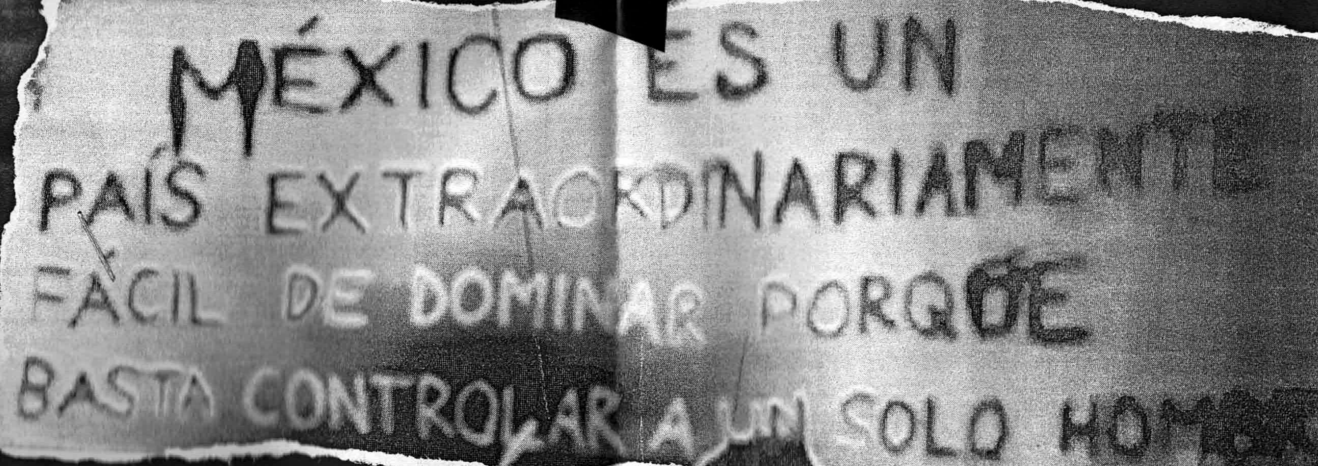 MÉXICO ES UN
PAÍS EXTRAORDINARIAMENTE
FÁCIL DE DOMINAR PORQUE
BASTA CONTROLAR A UN SOLO HOMBRE